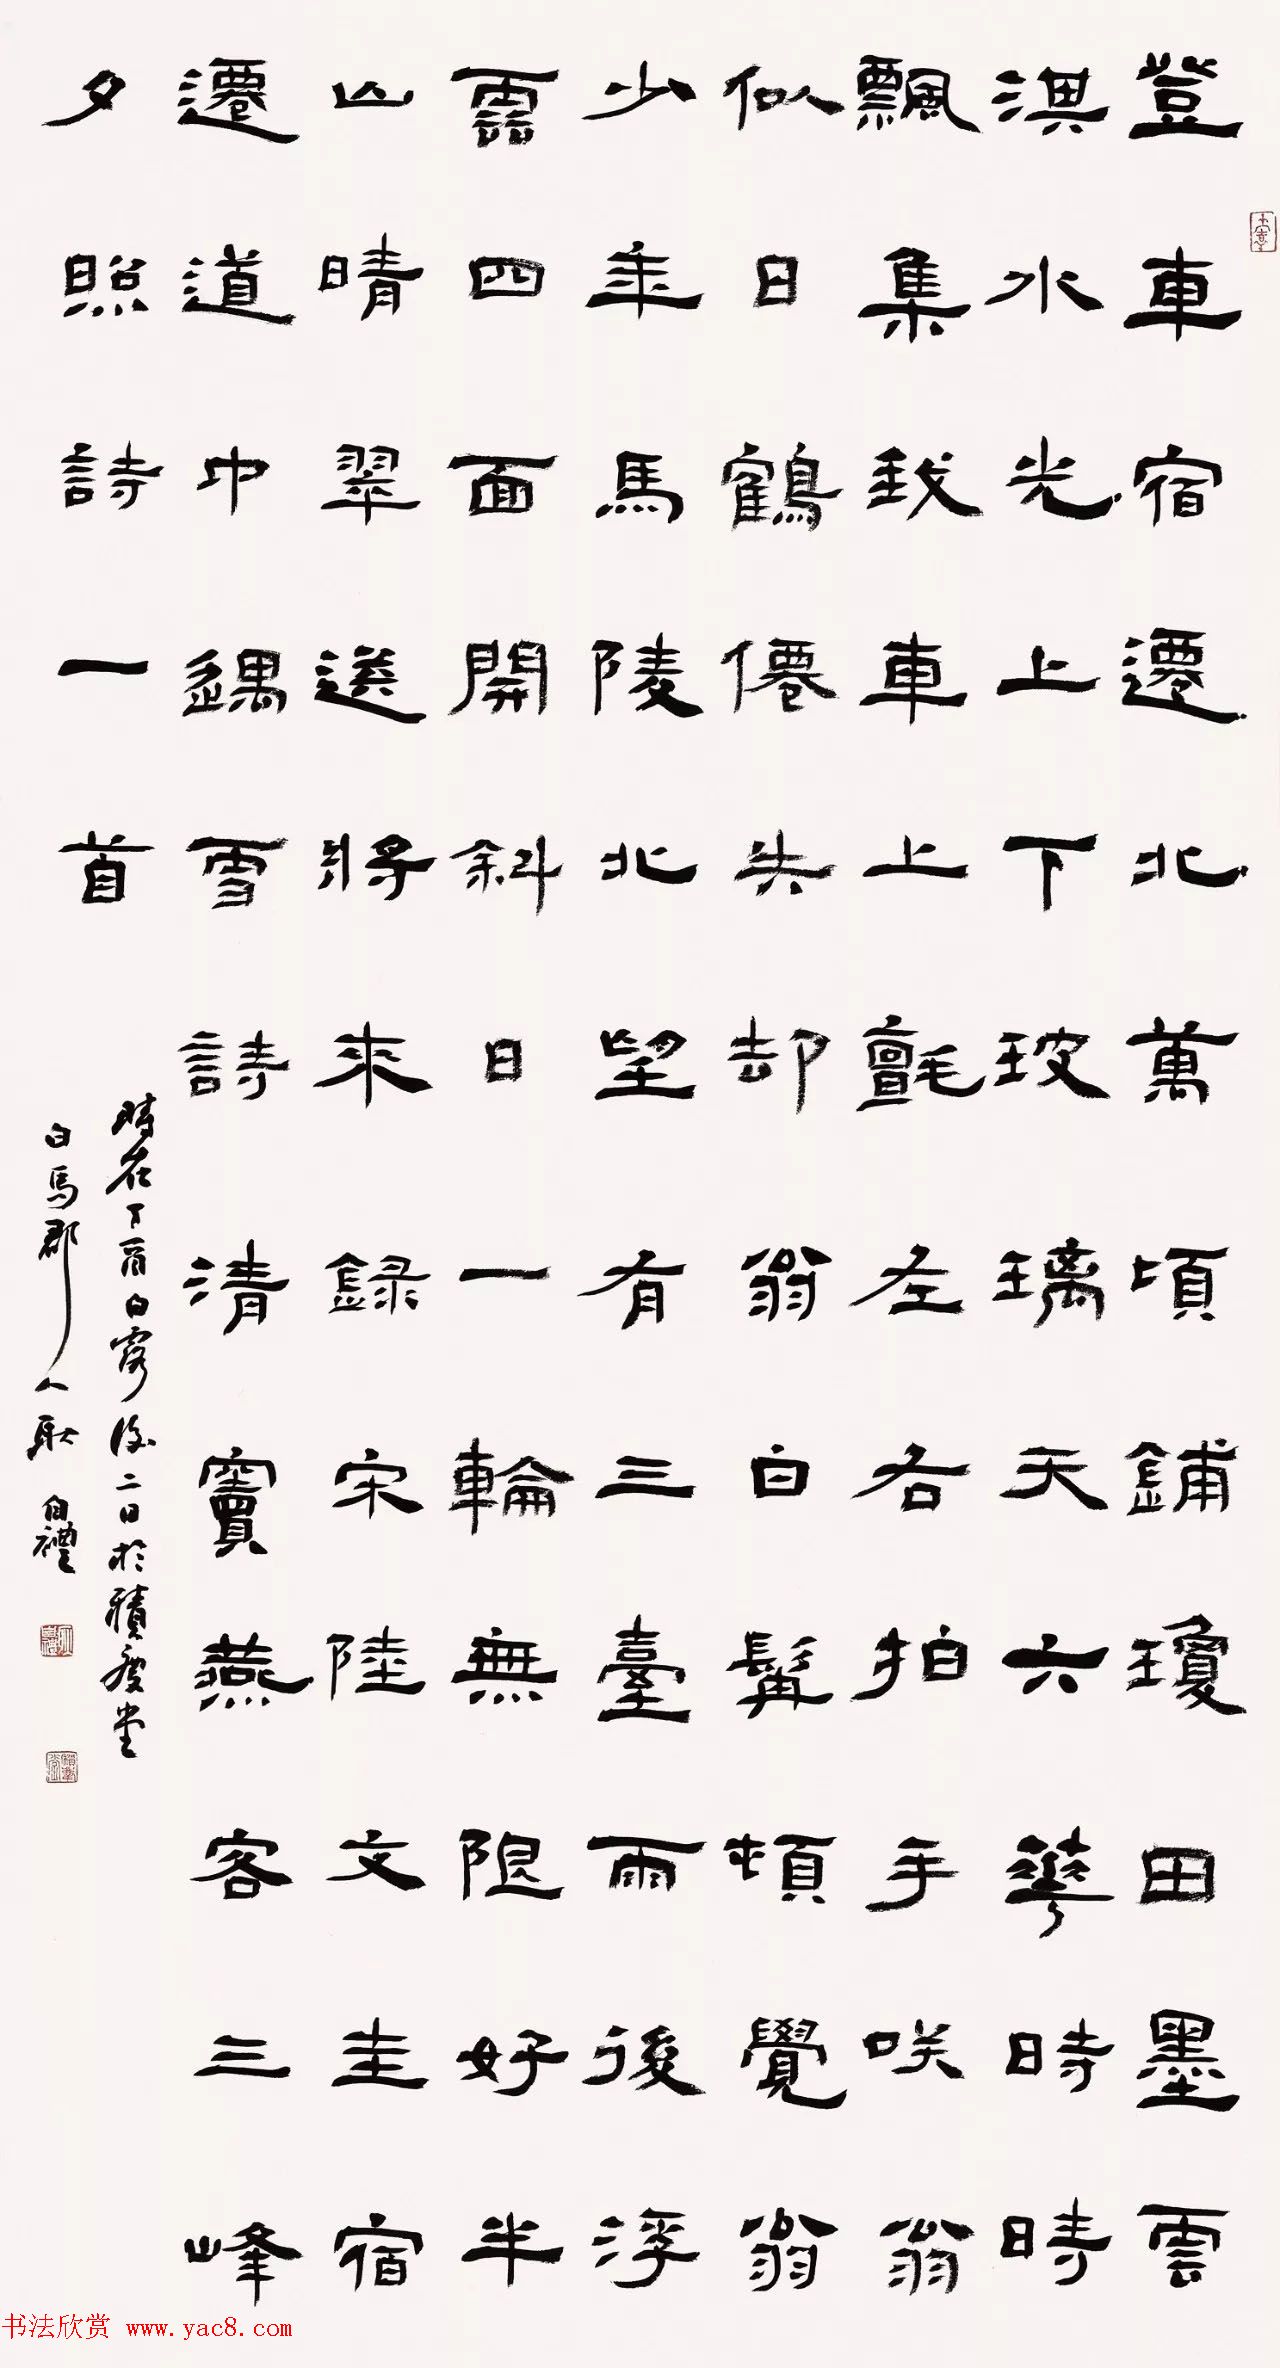 登車宿遷北萬頃鋪瓊田墨雲
淇水光上下玻璃天六華時時
飄集我車上氈左右拍手咲翁
似日鶴僊失却翁白髯頓覺翁
少年馬陵北望有三臺雨後浮
雲四面開斜日一輪無限好半
山晴翠送將來錄宋陸文圭宿
遷道中遇雪詩清竇燕客三峰
夕照詩一首
時在丁酉白露後二日於積慶堂
白馬郡人耿自禮
书法欣赏 www.yac8.com